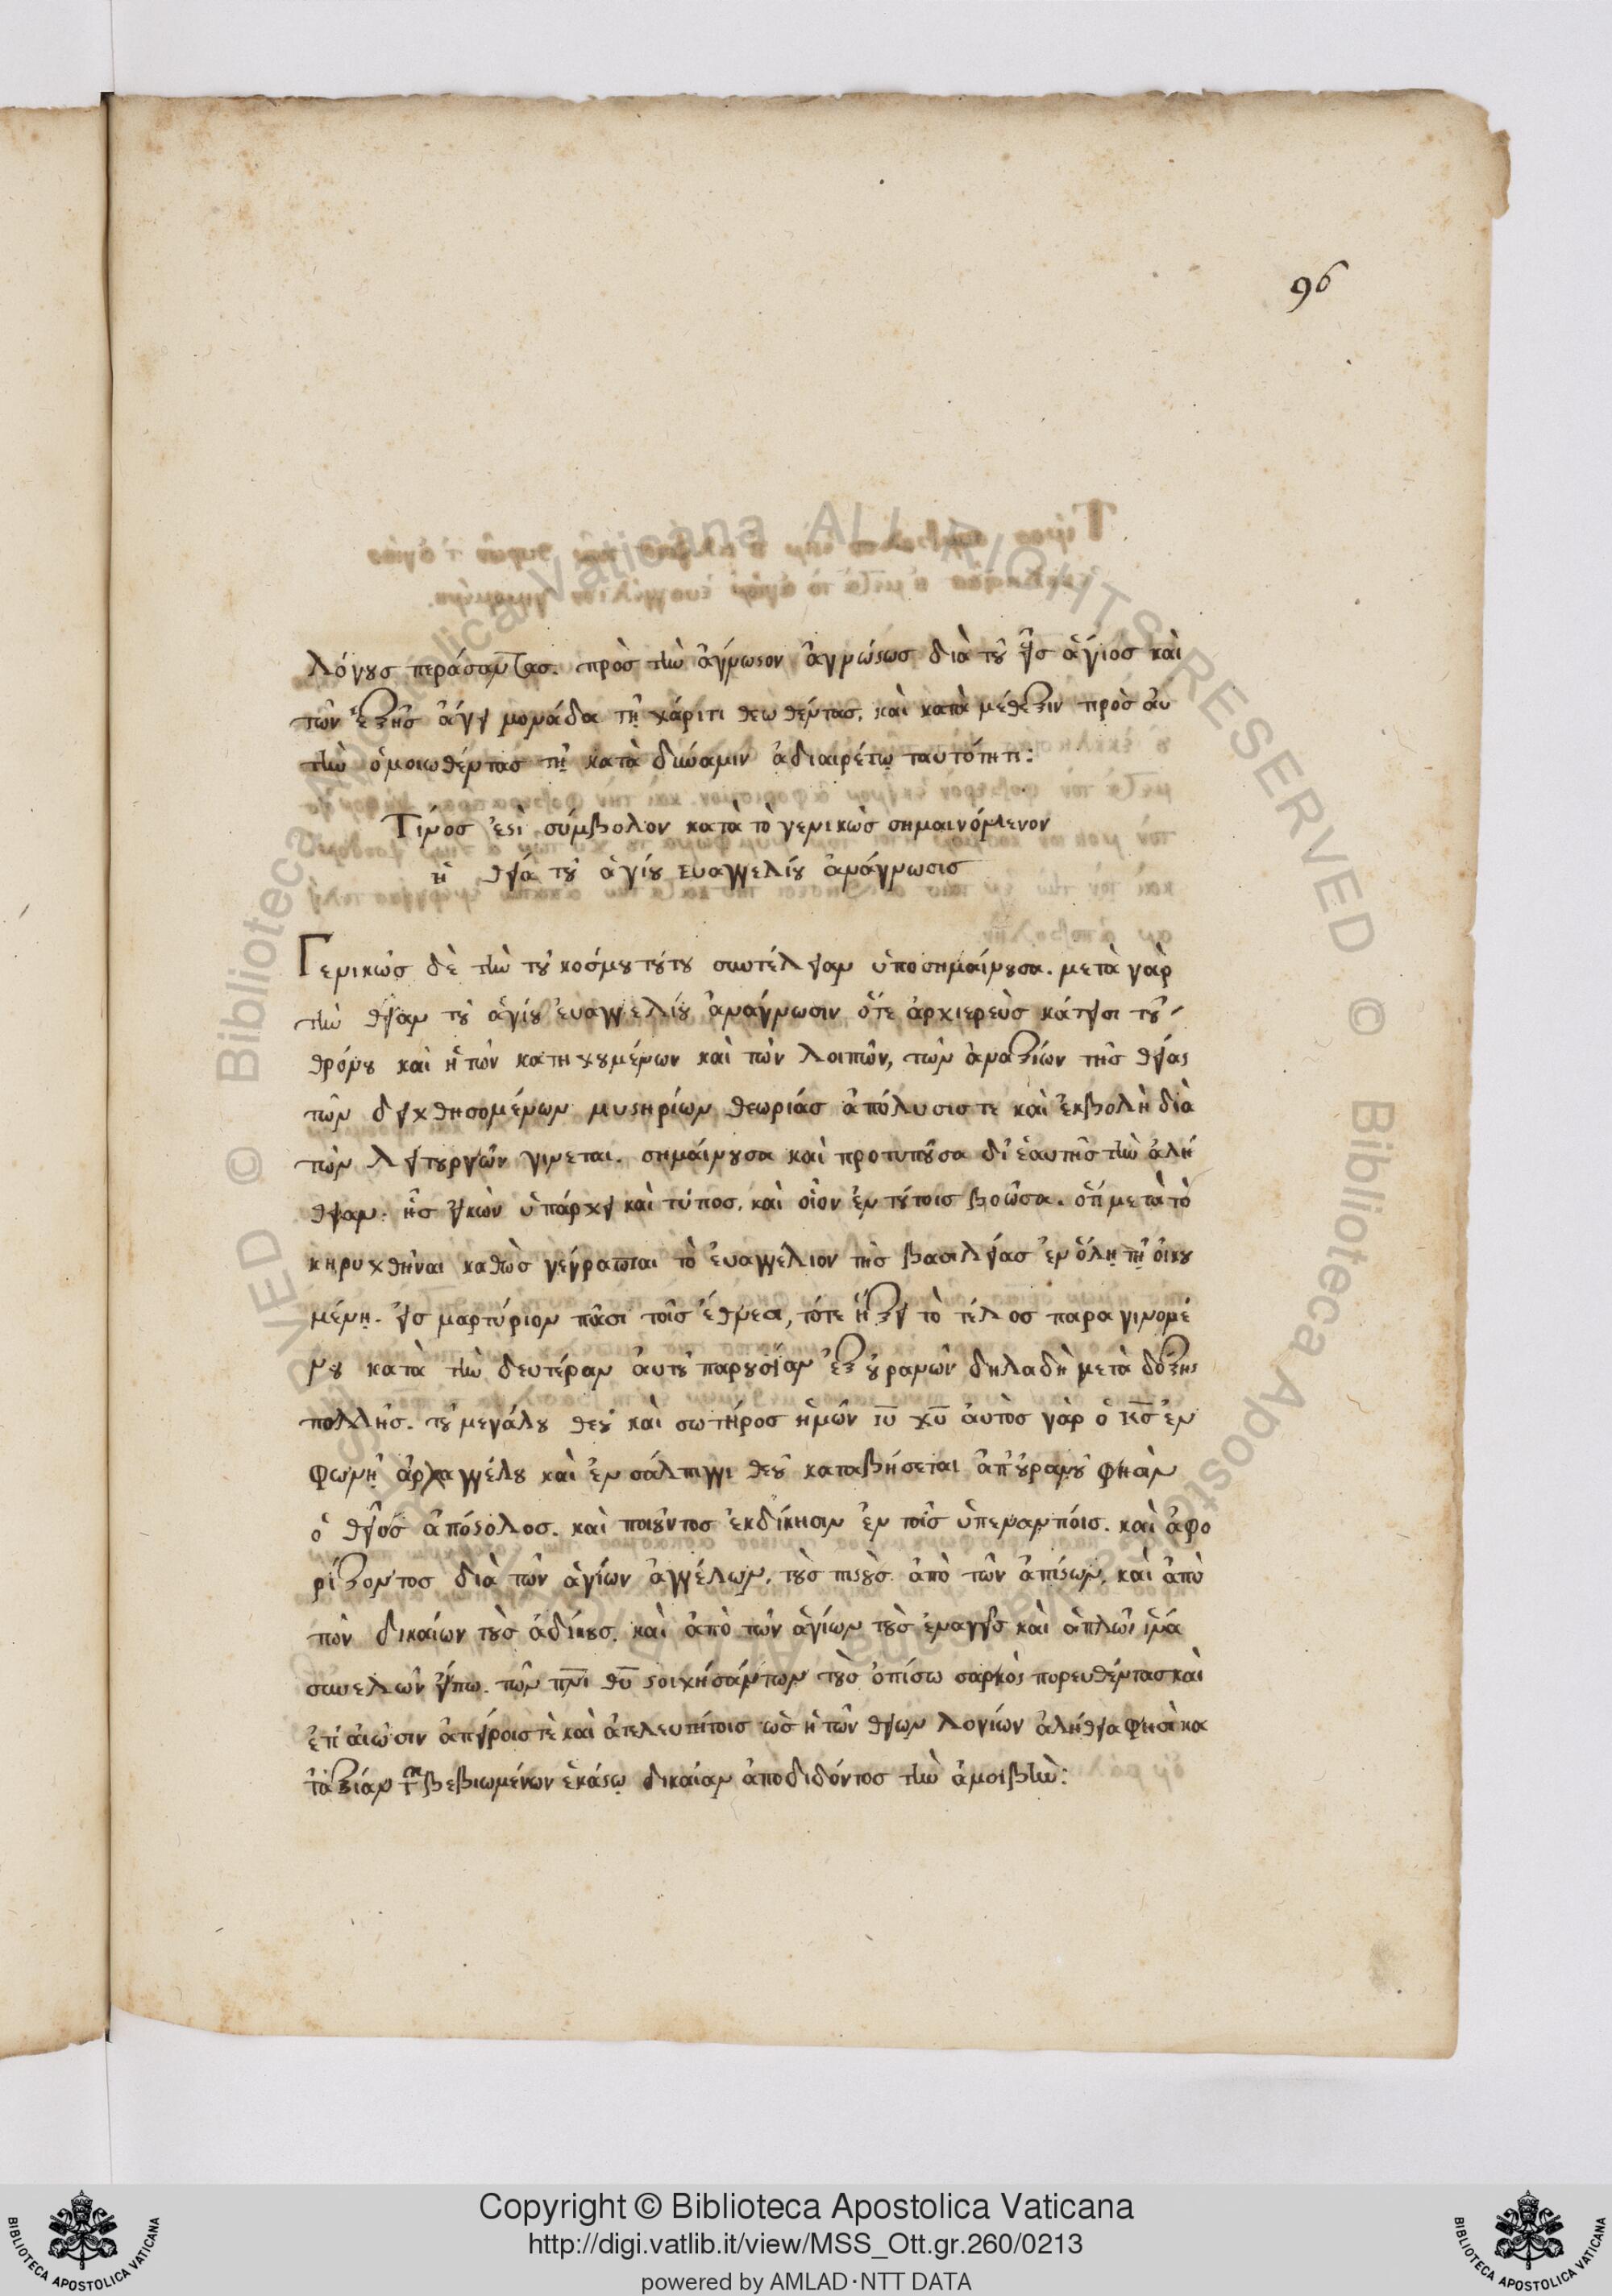 96
λόγους περάσαντας. πρὸς τὴν ἄγνωστον ἀγνώστως διὰ τοῦ εἷς ἅγιος καὶ
τῶν ἑξῆς ἄγει μονάδα τῇ χάριτι θεωθέντας, καὶ κατὰ μέθεξιν πρὸς αὐ
τὴν ὁμοιωθέντας τῇ κατὰ δύναμιν ἀδιαιρέτῳ ταυτότητι:
Τίνος ἐστὶ σύμβολον κατὰ τὸ γενικῶς σημαινόμενον
ἡ θεία τοῦ ἁγίου εὐαγγελίου ἀνάγνωσις
Γενικῶς δὲ τὴν τοῦ κόσμου τούτου συντέλειαν ὑποσημαίνουσα. μετὰ γὰρ
τὴν θείαν τοῦ ἁγίου εὐαγγελίου ἀνάγνωσιν ὅτε ἀρχιερεὺς κάτεισι τοῦ
θρόνου καὶ ἡ τῶν κατηχουμένων καὶ τῶν λοιπῶν, τῶν ἀναξίων τῆς θείας
τῶν δειχθησομένων μυστηρίων θεωρίας ἀπόλυσις τε καὶ ἐκβολὴ διὰ
τῶν λειτουργῶν γίνεται. σημαίνουσα καὶ προτυποῦσα δι' ἑαυτῆς τὴν ἀλή
θειαν. ἧς εἰκὼν ὑπάρχει καὶ τύπος, καὶ οἷον ἐν τούτοις βοῶσα. ὅτι μετὰ τὸ
κηρυχθῆναι καθὼς γέγραπται τὸ εὐαγγέλιον τῆς βασιλείας ἐν ὅλῃ τῇ οἰκου
μένῃ. εἰς μαρτύριον πᾶσι τοῖς ἔθνεσι, τότε ἥξει τὸ τέλος παραγινομέ
νου κατὰ τὴν δευτέραν αὐτοῦ παρουσίαν ἐξ οὐρανῶν δηλαδὴ μετὰ δόξης
πολλῆς. τοῦ μεγάλου θεοῦ καὶ σωτῆρος ἡμῶν ιυ χυ αὐτὸς γὰρ ὁ κς ἐν
φωνῇ ἀρχαγγέλου καὶ ἐν σάλπιγγι θεοῦ καταβήσεται ἀπ' οὐρανοῦ φησὶν
ὁ θεῖος ἀπόστολος. καὶ ποιοῦντος ἐκδίκησιν ἐν τοῖς ὑπεναντίοις. καὶ ἀφο
ρίζοντος διὰ τῶν ἁγίων ἀγγέλων, τοὺς πιστοὺς ἀπὸ τῶν ἀπίστων, καὶ ἀπὸ
τῶν δικαίων τοὺς ἀδίκους. καὶ ἀπὸ τῶν ἁγίων τοὺς ἐναγεῖς καὶ ἁπλῶς ἵνα
συνελὼν εἴπω. τῶν πνι θυ στοιχησάντων τοὺς ὀπίσω σαρκὸς πορευθέντας καὶ
ἐπ' αἰῶσιν ἀπείροις τὲ καὶ ἀτελευτήτοις ὡς ἡ τῶν θείων λογίων ἀλήθεια φησὶ κα
τ' ἀξίαν τῶν βεβιωμένων ἑκάστῳ δικαίαν ἀποδιδόντος τὴν ἀμοιβὴν:
© Biblioteca Apostolica Vaticana ALL RIGHTS RESERVED © Biblioteca Apostolica Vaticana ALL RIGHTS RESERVED
Copyright © Biblioteca Apostolica Vaticana
http://digi.vatlib.it/view/MSS_Ott.gr.260/0213
powered by AMLAD·NTT DATA
BIBLIOTECA APOSTOLICA VATICANA
BIBLIOTECA APOSTOLICA VATICANA